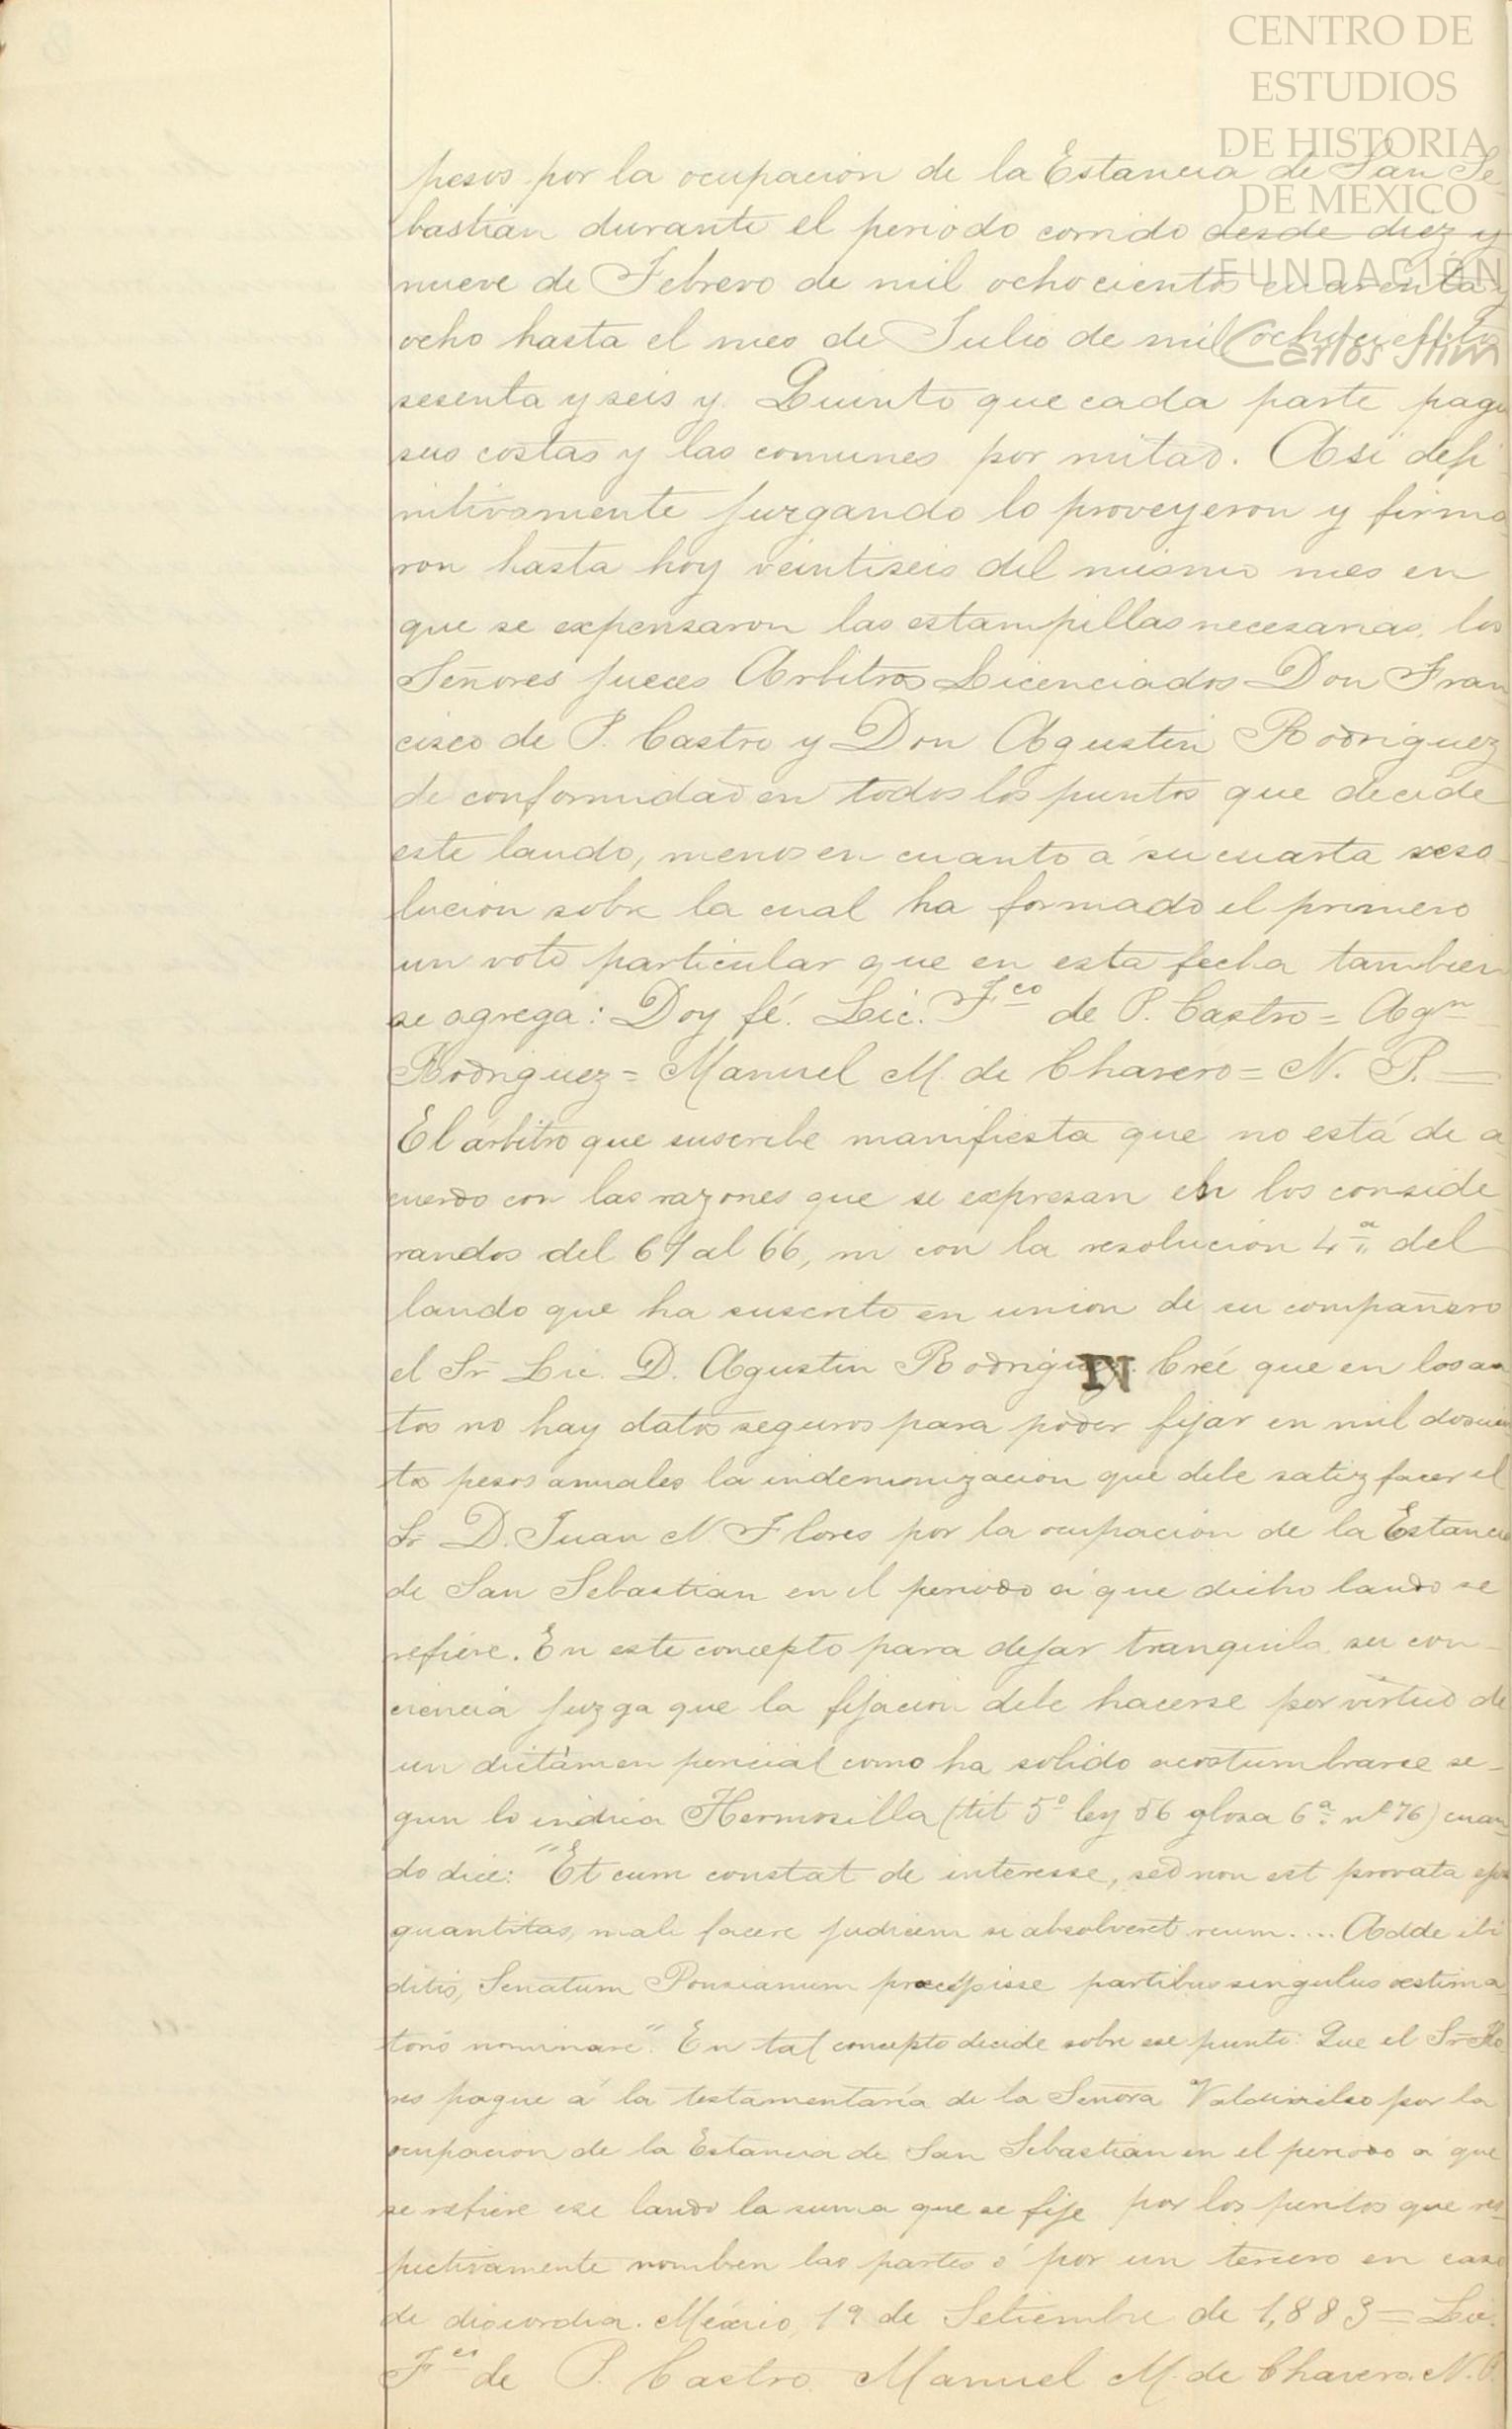 CENTRO DE
ESTUDIOS
DE HISTORIA
DE MEXICO
FUNDACIÓN
Carlos Slim
pesos por la ocupacion de la Estancia de San Se
bastian durante el periodo corrido desde diez y
nueve de Febrero de mil ochocientos cuarenta y
ocho hasta el mes de Julio de mil ochocientos
sesenta y seis y Quinto que cada parte pague
sus costas y las comunes por mitad. Asi defi
nitivamente juzgando lo proveyeron y firma
ron hasta hoy veintiseis del mismo mes en
que se expensaron las estampillas necesarias, los
Señores jueces Arbitros Licenciados Don Fran
cisco de P. Castro y Don Agustin Rodriguez
de conformidad en todos los puntos que decide
este laudo, menos en cuanto á su cuarta reso
lucion sobre la cual ha formado el primero
un voto particular que en esta fecha tambien
se agrega: Doy fé. Lic. Fco de P. Castro = Agn
Rodriguez = Manuel M. de Chavero = N. P. =
El árbitro que suscribe manifiesta que no está de a
cuerdo con las razones que se expresan en los conside
randos del 61 al 66, ni con la resolucion 4ª del
laudo que ha suscrito en union de su compañero
el Sr Lic. D. Agustin Rodriguez. Creé que en los au
tos no hay datos seguros para poder fijar en mil doscien
tos pesos anuales la indemnizacion que debe satizfacer el
Sr D. Juan N Flores por la ocupacion de la Estancia
de San Sebastian en el periodo á que dicho laudo se
refiere. En este concepto para dejar tranquila su con-
ciencia juzga que la fijacion debe hacerse por virtud de
un dictámen pericial como ha solido acostumbrarse se-
gun lo indica Hermosilla (tit 5º ley 56 glosa 6ª nº 76) cuan
do dice: "Et cum constat de interesse, sed non est provata ejus
quantitas, male facere judicem si absolveret reum.... Adde ibi
ditis, Senatum præcepisse partibus singulus œstima
toris nominare". En tal concepto decide sobre ese punto: Que el Sr Flo
res pague á la testamentaría de la Señora Valdivielso por la
ocupacion de la Estancia de San Sebastian en el periodo á que
se refiere ese laudo la suma que se fije por los peritos que res
pectivamente nombren las partes ó por un tercero en caso
de discordia. México, 19 de Setiembre de 1,883 = Lic.
Fco de P. Castro Manuel M. de Chavero. N. P.
N